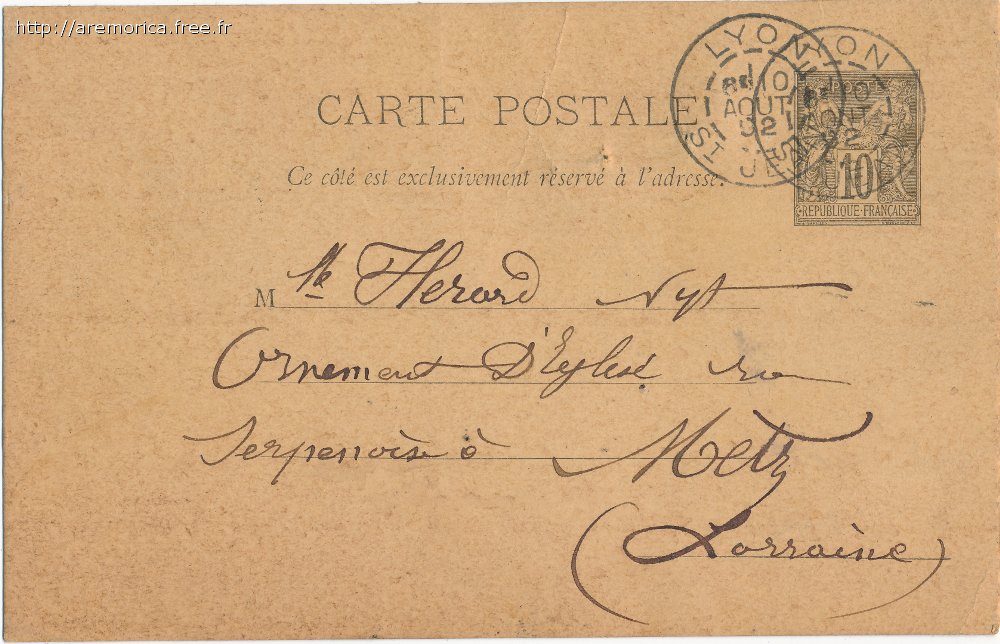 http://aremorica.free.fr
LYON
10
AOUT
92
ST JEAN
CARTE POSTALE
10
REPUBLIQUE·FRANÇAISE
Ce côté est exclusivement réservé à l'adresse.
M lle Herard
Ornement D'Eglise rue
Serpenoise à Metz
(Lorraine)